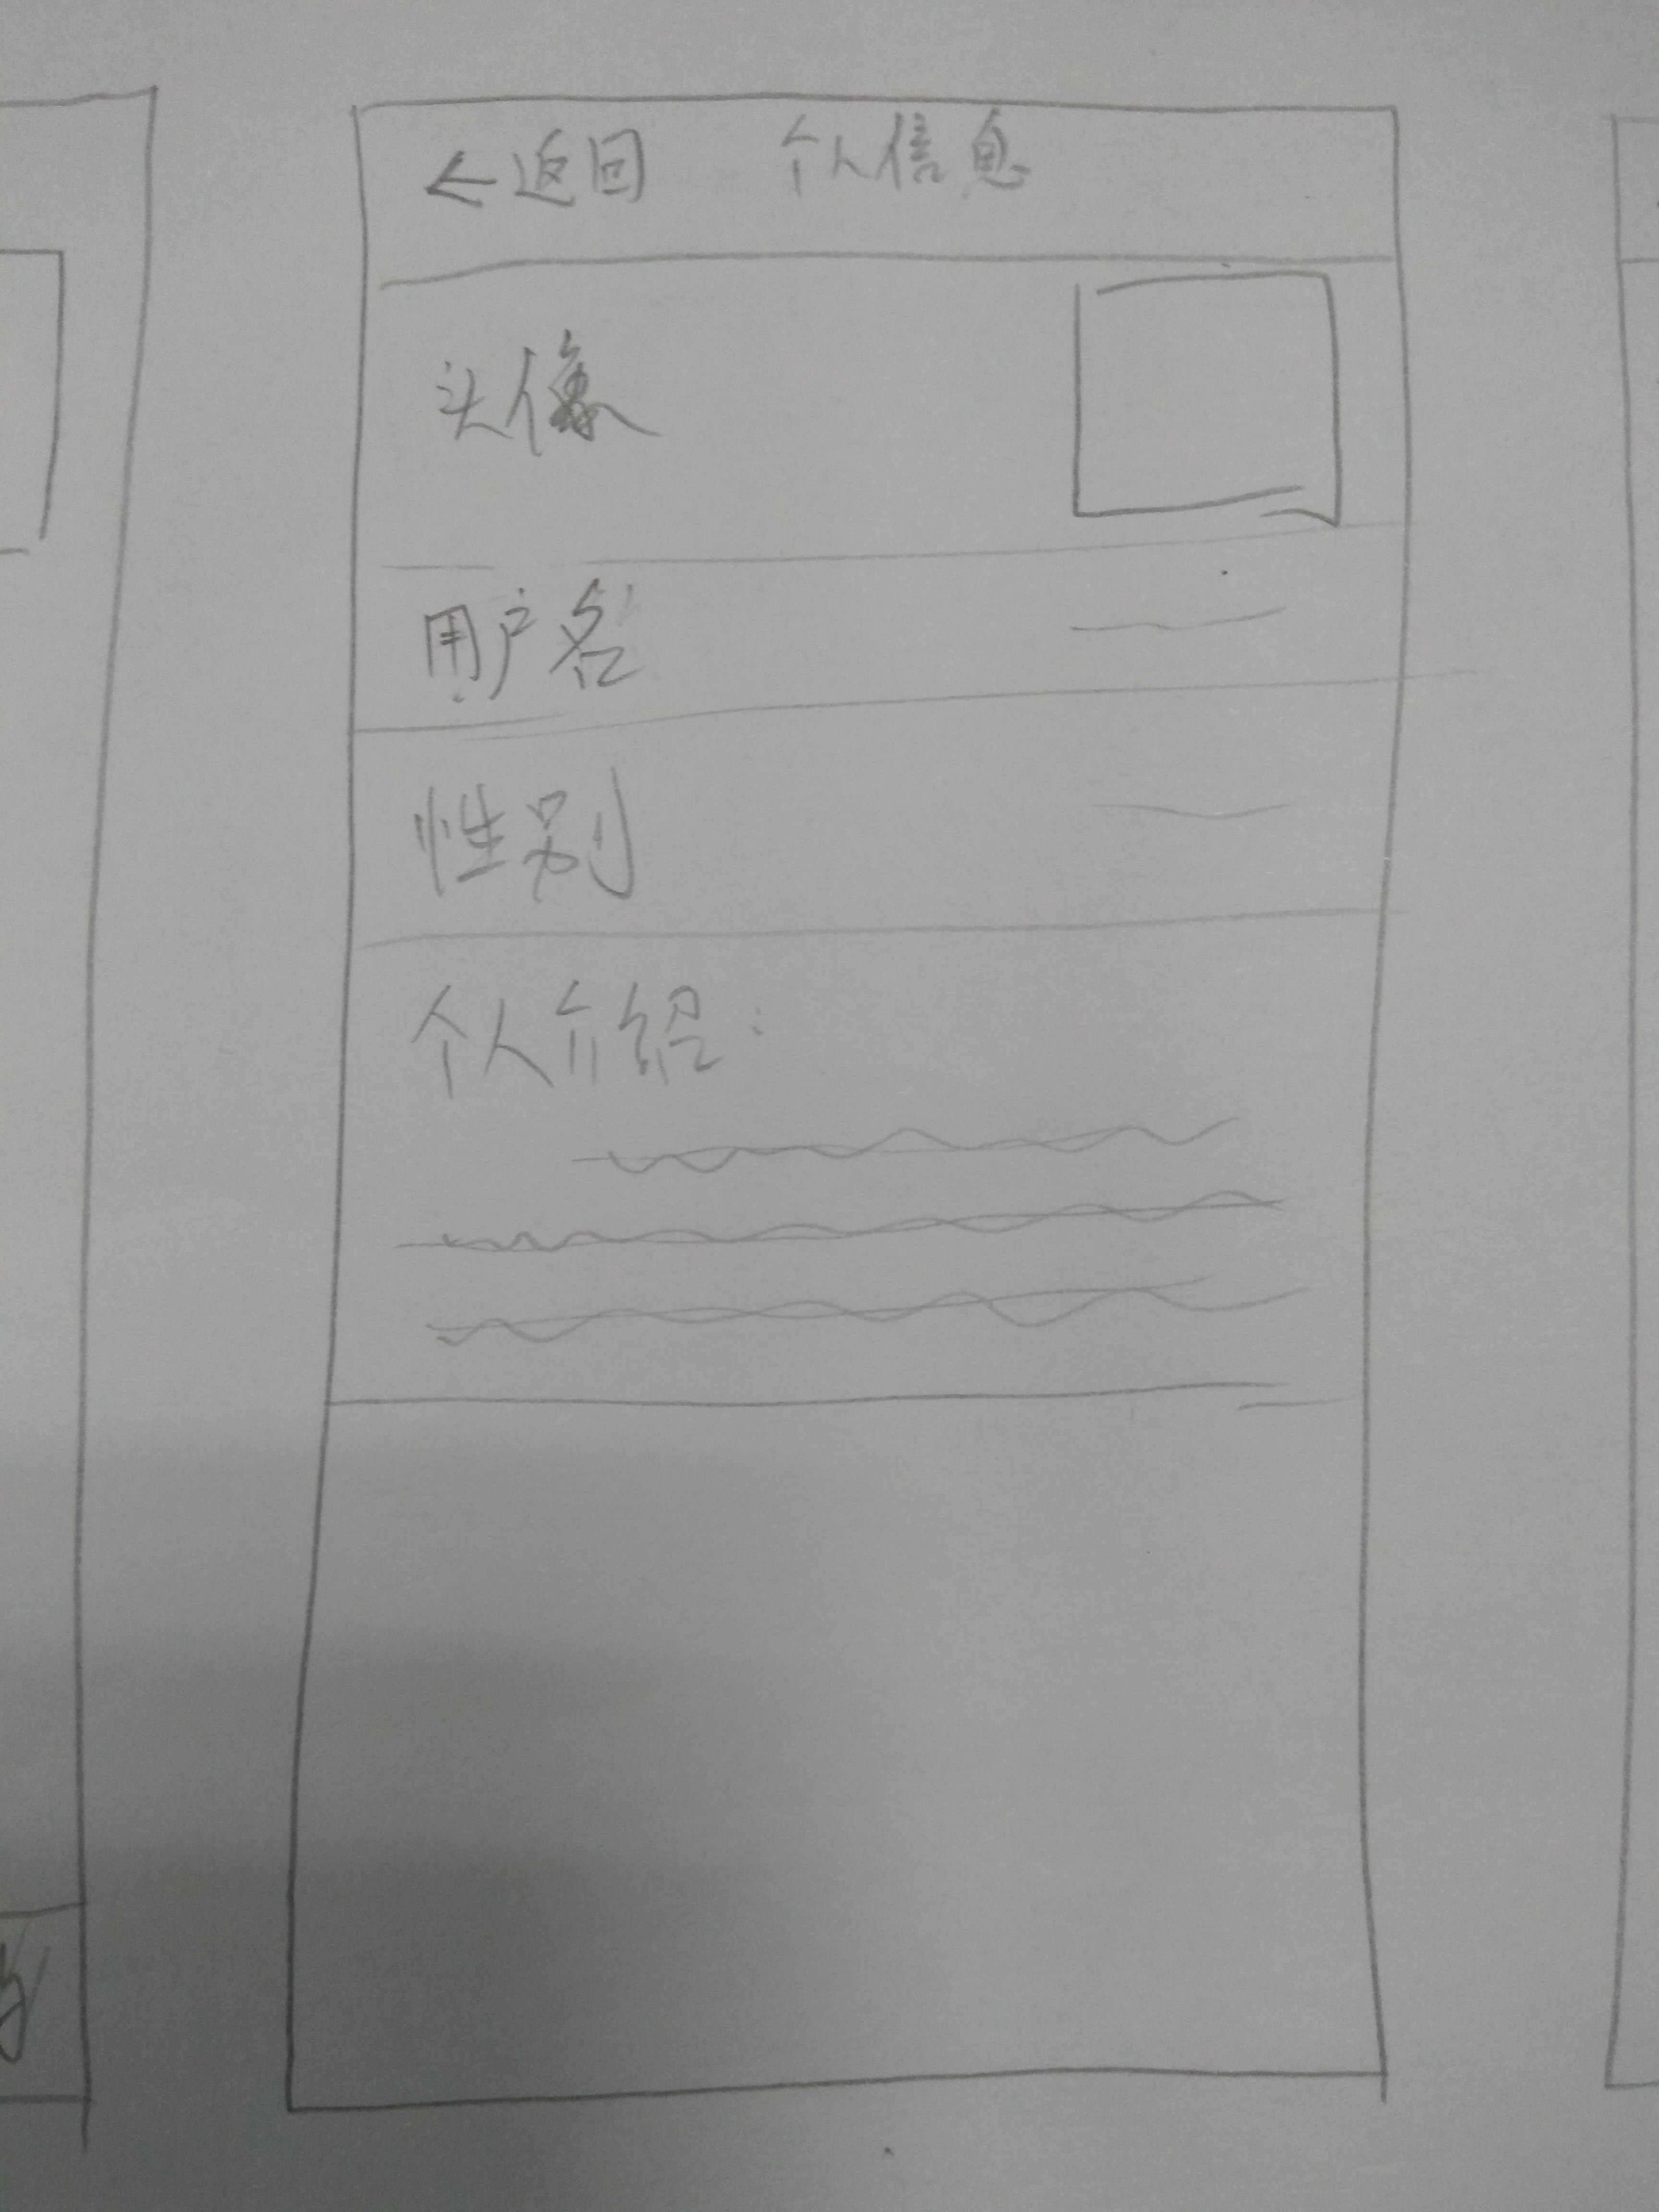 ←返回 个人信息
头像
用户名
性别
个人介绍：